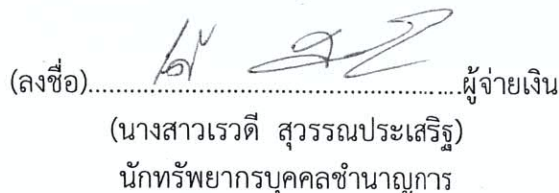 (ลงชื่อ)..................................................ผู้จ่ายเงิน
(นางสาวเรวดี สุวรรณประเสริฐ)
นักทรัพยากรบุคคลชำนาญการ